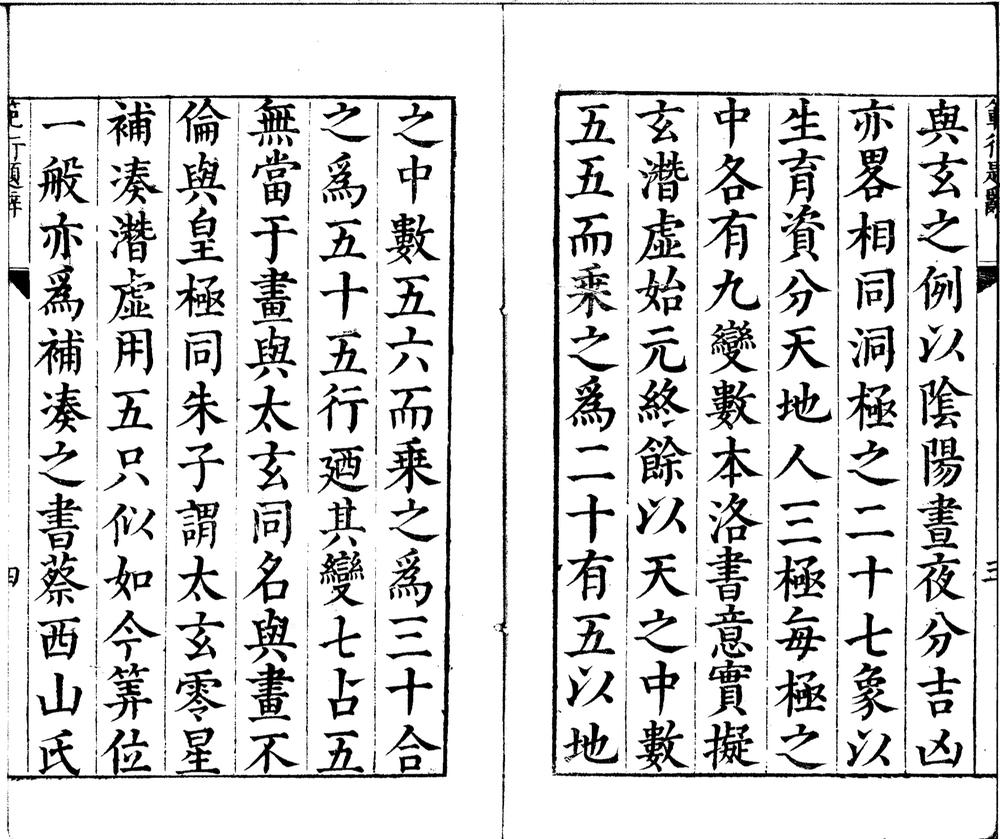 與玄之例以陰陽晝夜分吉凶
亦畧相同洞極之二十七象以
生育資分天地人三極每極之
中各有九變數本洛書意實擬
玄潛虛始元終餘以天之中數
五五而乘之爲二十有五以地
之中數五六而乘之爲三十合
之爲五十五行廼其變七占五
無當于畫與太玄同名與畫不
倫與皇極同朱子謂太玄零星
補凑潛虛用五只似如今筭位
一般亦爲補凑之書蔡西山氏
三
四